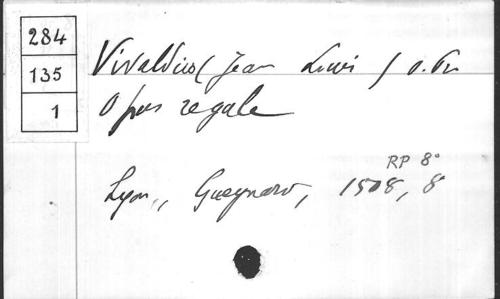 284
135
1
Vivaldus (Jean Louis) o.Pr.
Opus regale
RP 8°
Lyon,, Gueynard, 1508, 8°